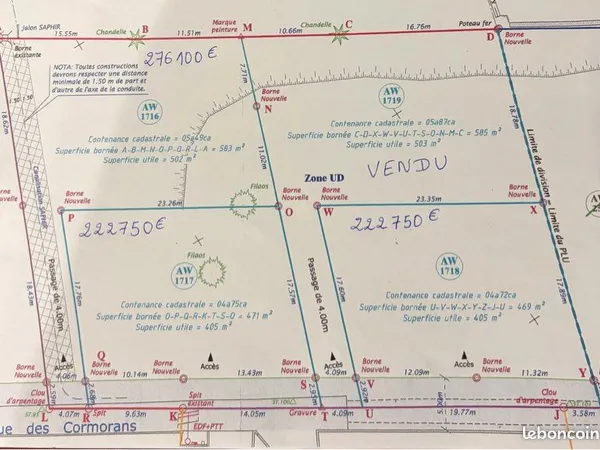 Jalon SAPHIR
Borne
existante
15.55m
Chandelle
B
11.51m
Marque
peinture
M
10.66m
Chandelle
C
16.76m
Poteau fer
D
Borne
Nouvelle
276100€
NOTA: Toutes constructions
devrons respecter une distance
minimale de 1.50 m de part et
d'autre de l'axe de la conduite.
7.71m
N
Borne
Nouvelle
AW
1716
Contenance cadastrale = 05a49ca
Superficie bornée A-B-M-N-O-P-Q-R-L-A = 583 m²
Superficie utile = 502 m²
11.02m
AW
1719
Contenance cadastrale = 05a87ca
Superficie bornée C-D-X-W-V-U-T-S-O-N-M-C = 585 m²
Superficie utile = 503 m²
18.78m
Limite de division - Limite du PLU
18.62m
Canalisation SAPHIR
Zone UD
VENDU
Filaos
Borne
Nouvelle
P
23.26m
O
Borne
Nouvelle
W
Borne
Nouvelle
23.35m
X
Borne
Nouvelle
222750€
222750€
Filaos
AW
1717
Contenance cadastrale = 04a75ca
Superficie bornée O-P-Q-R-K-T-S-O = 471 m²
Superficie utile = 405 m²
AW
1718
Contenance cadastrale = 04a72ca
Superficie bornée U-V-W-X-Y-Z-J-U = 469 m²
Superficie utile = 405 m²
18.43m
Passage de 4.00m
17.76m
17.57m
Passage de 4.00m
17.60m
17.89m
Borne
Nouvelle
Accès
4.06m
Q
Borne
Nouvelle
10.14m
Accès
13.43m
Borne
Nouvelle
S
Accès
4.09m
Borne
Nouvelle
V
12.09m
Accès
11.32m
Borne
Nouvelle
Y
Clou
d'arpentage
L
4.07m
R
Spit
9.63m
K
Spit
existant
14.05m
Gravure
T
4.09m
U
19.77m
5.00m
Clou
d'arpentage
J
3.58m
2.68m
2.95m
EDF+PTT
ue des Cormorans
leboncoin